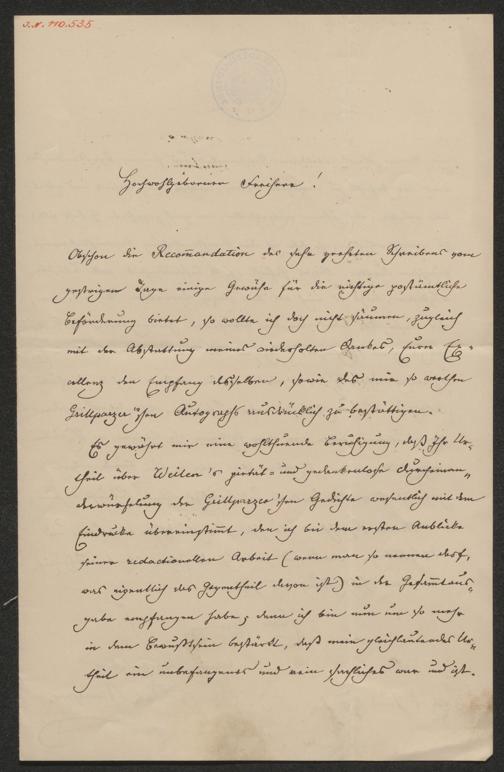 J.N. 110.535
Hochwohlgeborner Freiherr!
Obschon die Recom̄andation des sehr geehrten Schreibens vom
gestrigen Tage einige Gewähr für die richtige postämtliche
Beförderung bietet, so wollte ich doch nicht säumen, zugleich
mit der Abstattung meines wiederholten Dankes, Eurer Ex-
cellenz den Empfang desselben, sowie des mir so werthen
Grillparzer'schen Autographs ausdrücklich zu bestättigen.
Es gewährt mir eine wohlthuende Beruhigung, daß Ihr Ur-
theil über Weilen's pietät- und gedankenlose Durcheinan-
derwürfelung der Grillparzer'schen Gedichte wesentlich mit dem
Eindrucke übereinstim̄t, den ich bei dem ersten Anblicke
seiner redactionellen Arbeit (wenn man so nennen darf,
was eigentlich das Gegentheil davon ist) in der Gesam̄taus-
gabe empfangen habe; denn ich bin nun um so mehr
in dem Bewußtsein bestärkt, daß mein gleichlautendes Ur-
theil ein unbefangenes und rein sachliches war und ist.